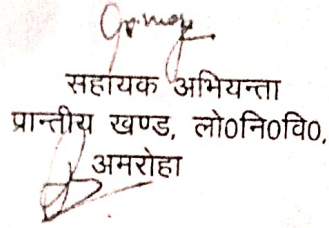 सहायक अभियन्ता
प्रान्तीय खण्ड, लो0नि0वि0,
अमरोहा